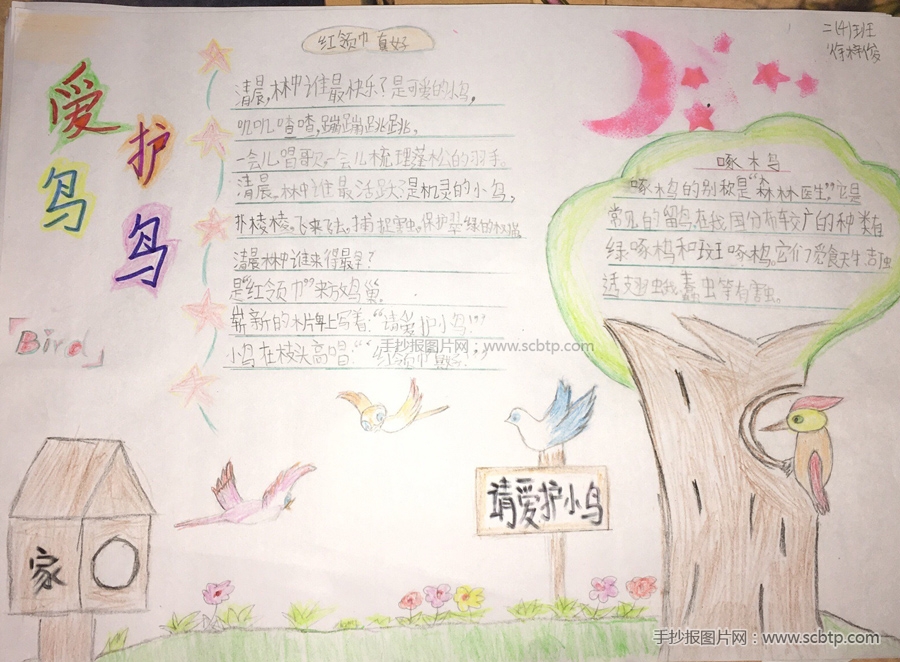 爱护鸟
鸟
Bird
红领巾真好
清晨,林中谁最快乐?是可爱的小鸟,
叽叽喳喳,蹦蹦跳跳,
一会儿唱歌,一会儿梳理蓬松的羽毛。
清晨,林中谁最活跃?是机灵的小鸟,
扑棱棱,飞来飞去,捕捉害虫,保护翠绿的树梢
清晨林中谁来得最早?
是“红领巾”来放鸟巢。
崭新的木片牌上写着:“请爱护小鸟!”
小鸟在枝头高唱:“红领巾真好!”
手抄报图片网:www.scbtp.com
二(4)班
啄木鸟
啄木鸟的别称是“森林医生”,它是
常见的留鸟,在我国分布较广的种类有
绿啄木鸟和斑啄木鸟。它们觅食天牛、吉丁虫
透翅虫蛾蠹虫等有害虫。
请爱护小鸟
家
手抄报图片网:www.scbtp.com